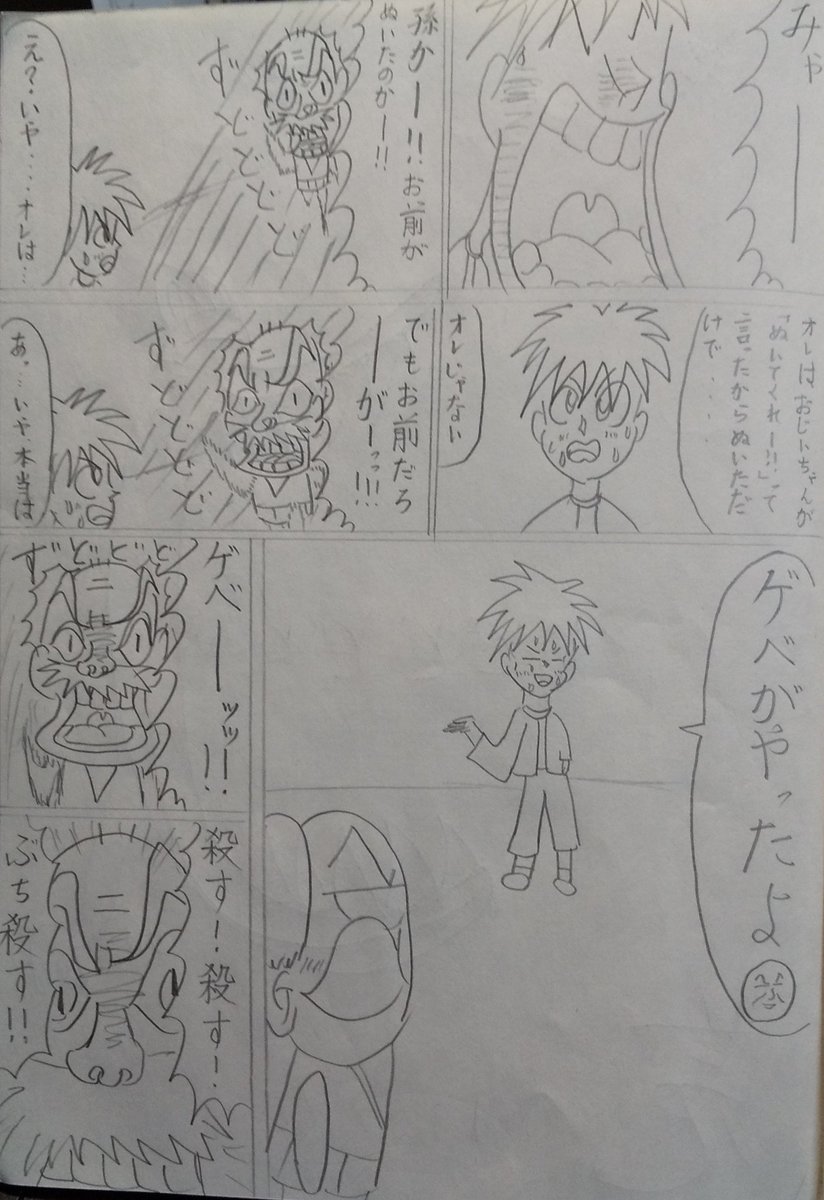 みゃー
孫かー!!お前が
ぬいたのかー!!
ずどどどど
え?いや....オレは...
オレは、おじいちゃんが
「ぬいてくれー!!」って
言ったからぬいただ
けで....
オレじゃない
でもお前だろ
ーがーっっ!!!
ずどどどど
あっ...いや、本当は
ゲベがやったよ
笑
ゲベーッッ!!
ずどどどど
殺す!殺す!
ぶち殺す!!